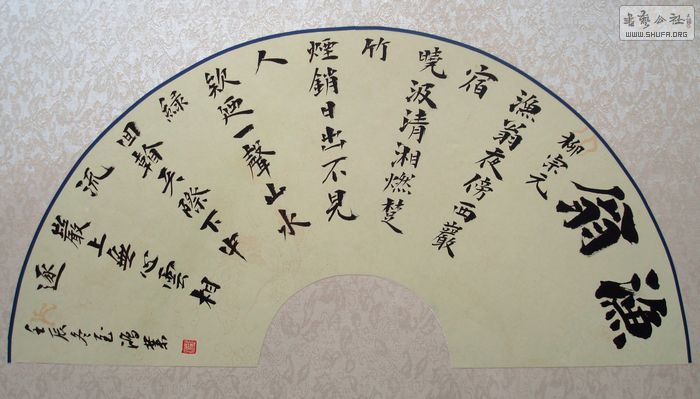 漁翁
柳宗元
漁翁夜傍西巖
宿
曉汲清湘燃楚
竹
煙銷日出不見
人
欸廼一聲山水
綠
回翰天際下中
流
巖上無心雲相
逐
壬辰冬至鴻業
書藝公社
WWW.SHUFA.ORG